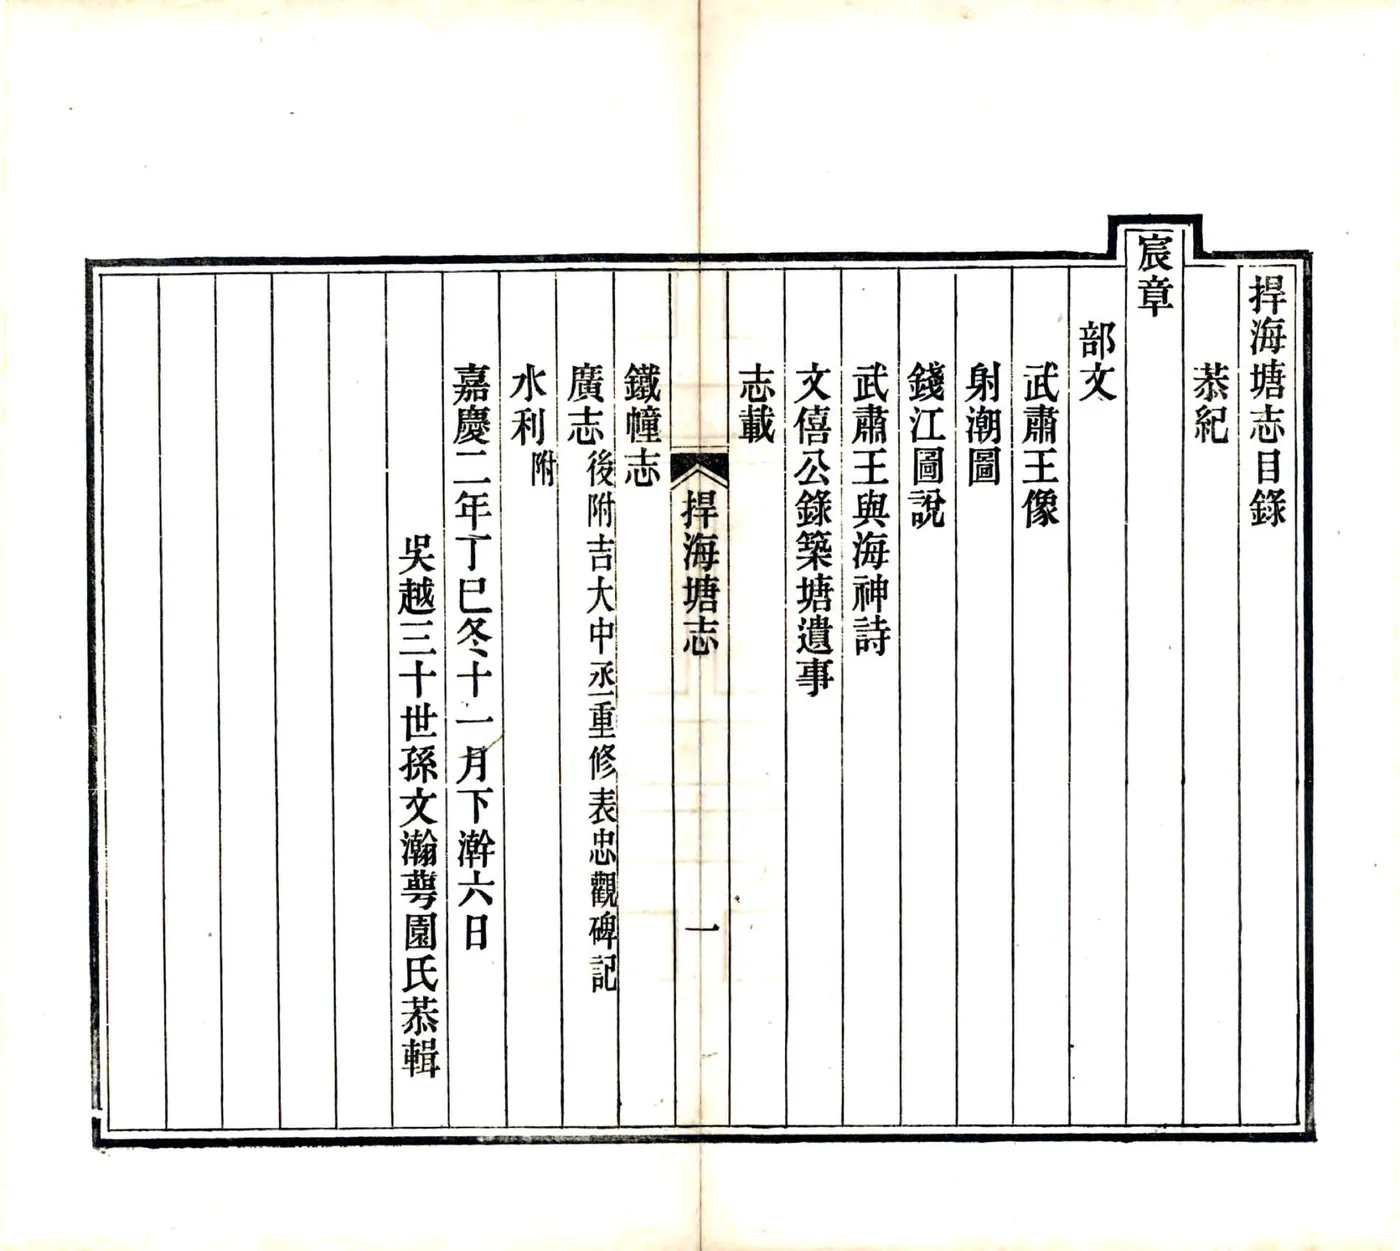 捍海塘志目錄
恭紀
宸章
部文
武肅王像
射潮圖
錢江圖說
武肅王與海神詩
文僖公錄築塘遺事
志載
捍海塘志
一
鐵幢志
廣志後附吉大中丞重修表忠觀碑記
水利附
嘉慶二年丁巳冬十一月下澣六日
吳越三十世孫文瀚蕚園氏恭輯